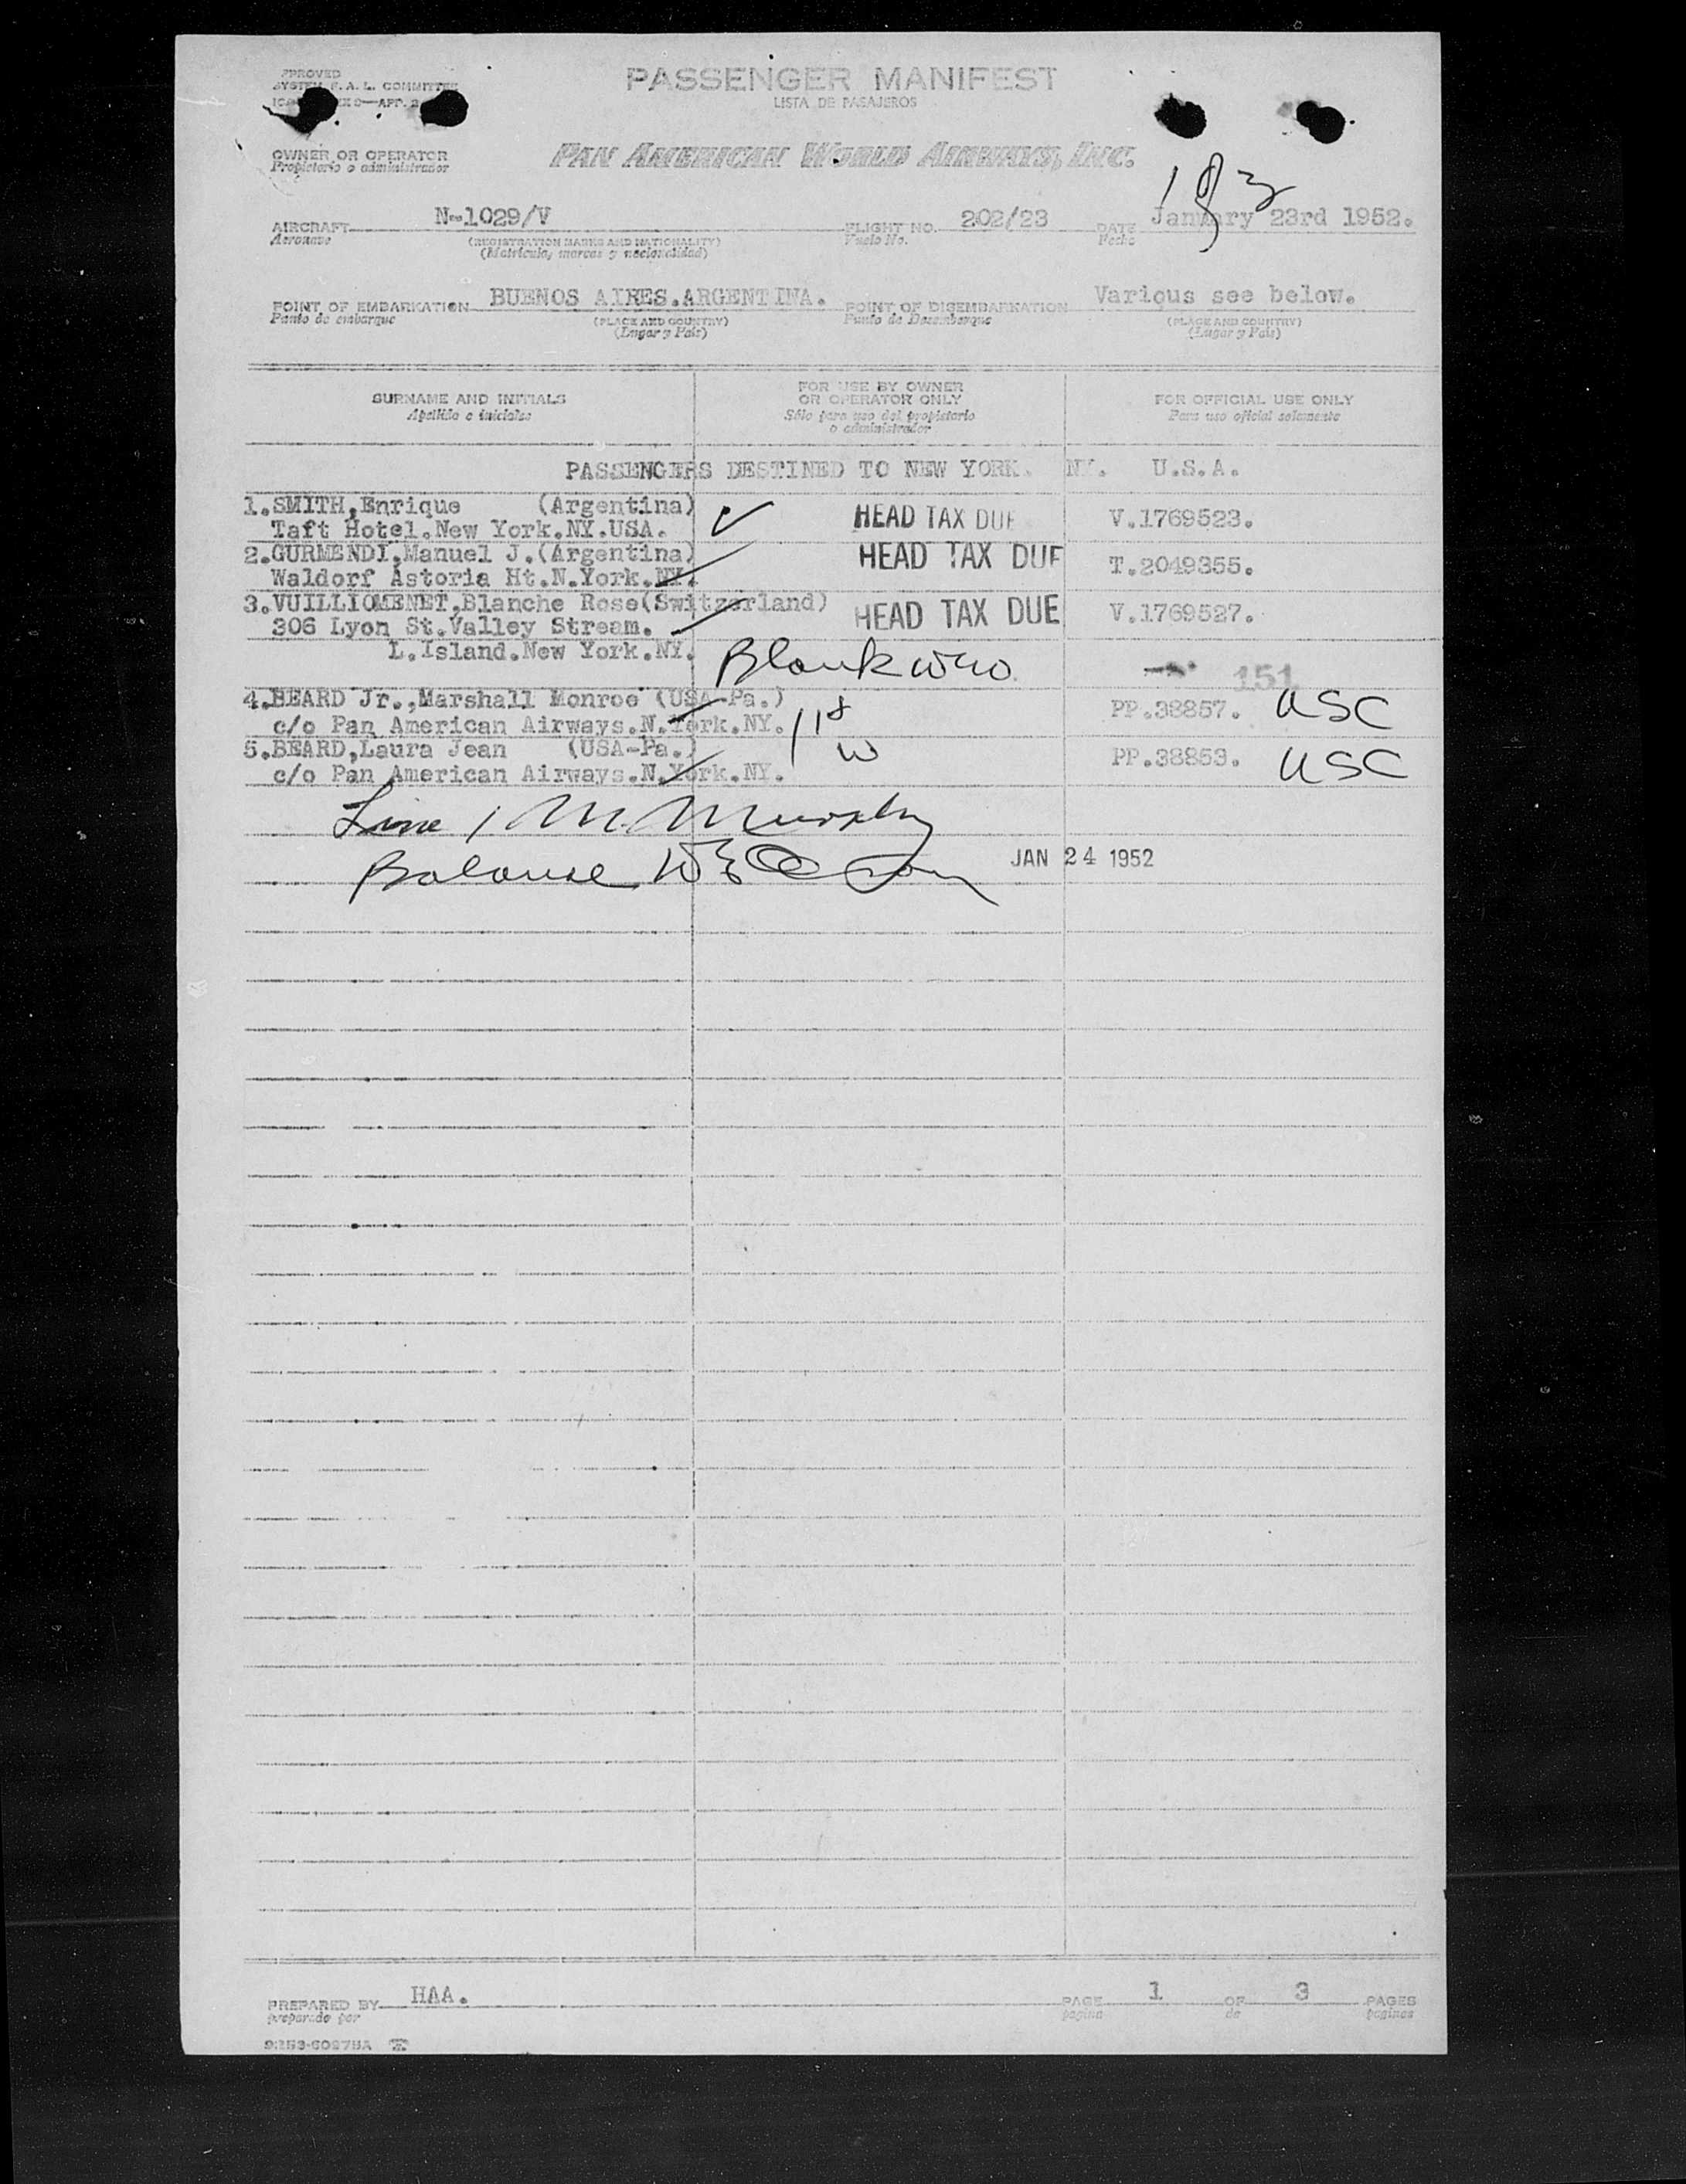 APPROVED
SYSTEM F.A.L. COMMITTEE
9—APP. 2
PASSENGER MANIFEST
LISTA DE PASAJEROS
OWNER OR OPERATOR
Propietario o administrador
PAN AMERICAN WORLD AIRWAYS, INC.
183
AIRCRAFT N-1029/V FLIGHT NO. 202/23 DATE January 23rd 1952.
Aeronave Vuelo No. Fecha
(REGISTRATION MARKS AND NATIONALITY)
(Matricula, marcas y nacionalidad)
POINT OF EMBARKATION BUENOS AIRES.ARGENTINA. POINT OF DISEMBARKATION Various see below.
Punto de embarque (PLACE AND COUNTRY) Punto de Desembarque (PLACE AND COUNTRY)
(Lugar y Pais) (Lugar y Pais)
SURNAME AND INITIALS FOR USE BY OWNER OR OPERATOR ONLY FOR OFFICIAL USE ONLY
Apellido e iniciales Sólo para uso del propietario o administrador Para uso oficial solamente
PASSENGERS DESTINED TO NEW YORK. NY. U.S.A.
1.SMITH,Enrique (Argentina) HEAD TAX DUE V.1769523.
Taft Hotel.New York.NY.USA.
2.GURMENDI,Manuel J.(Argentina) HEAD TAX DUE T.2049355.
Waldorf Astoria Ht.N.York.NY.
3.VUILLIOMENET,Blanche Rose(Switzerland) HEAD TAX DUE V.1769527.
306 Lyon St.Valley Stream.
L.Island.New York.NY. Blank 151
4.BEARD Jr.,Marshall Monroe (USA-Pa.) PP.38857. USC
c/o Pan American Airways.N.York.NY.
5.BEARD,Laura Jean (USA-Pa.) PP.38853. USC
c/o Pan American Airways.N.York.NY.
Line 1 M. Murphy
Balance
JAN 24 1952
PREPARED BY HAA. PAGE 1 OF 3 PAGES
preparado por pagina de paginas